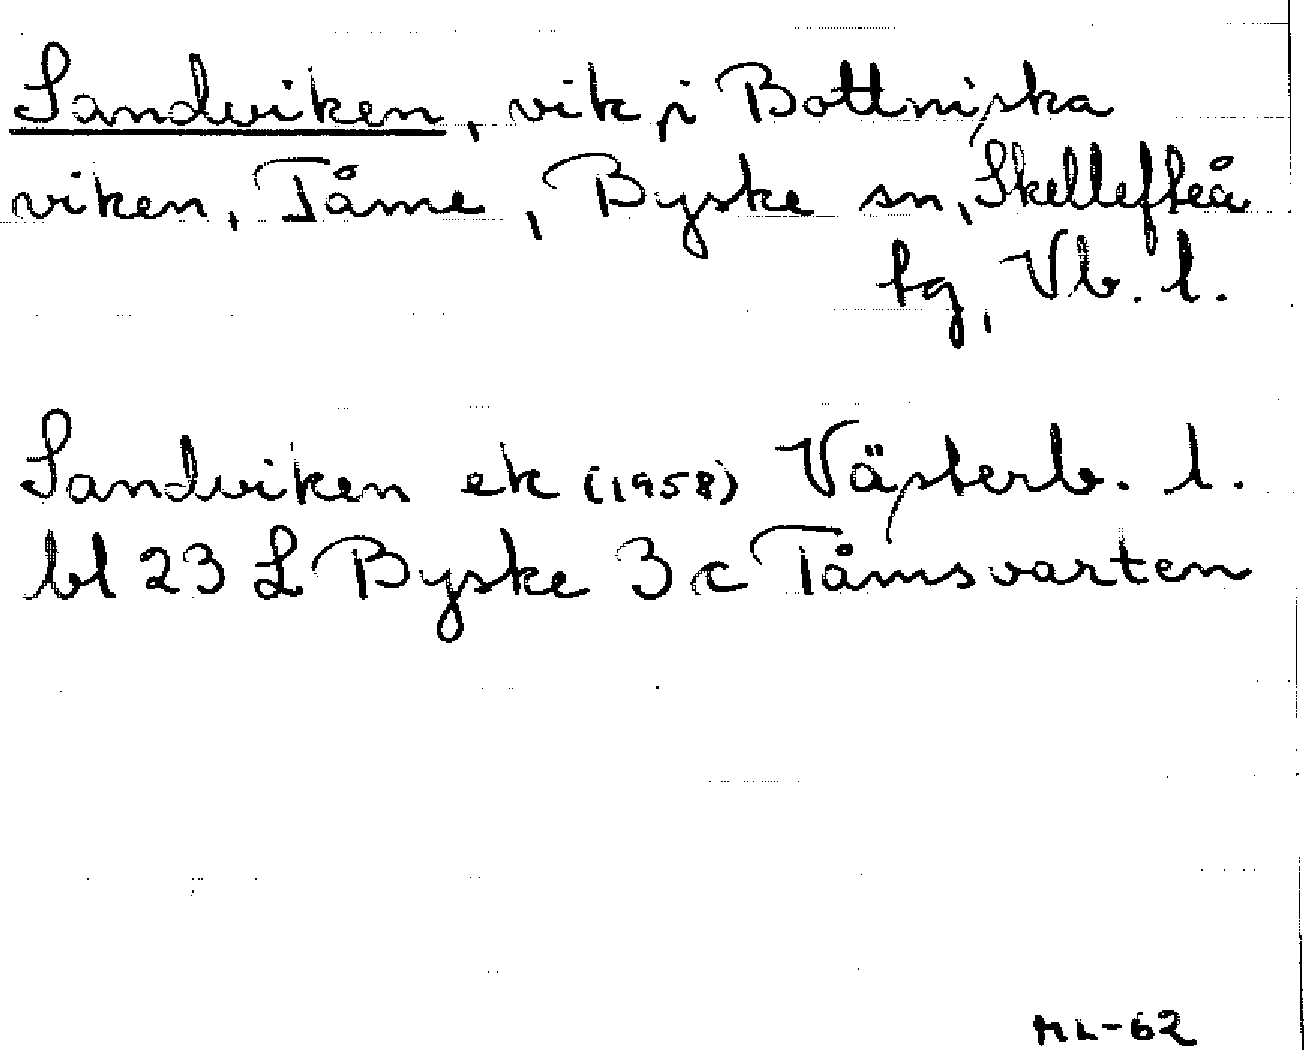 Sandviken, vik i Bottniska
viken, Tåme, Byske sn, Skellefteå
tg, Vb. l.
Sandviken ek (1958) Västerb. l.
bl 23 L Byske 3 c Tåmsvarten
ML-62